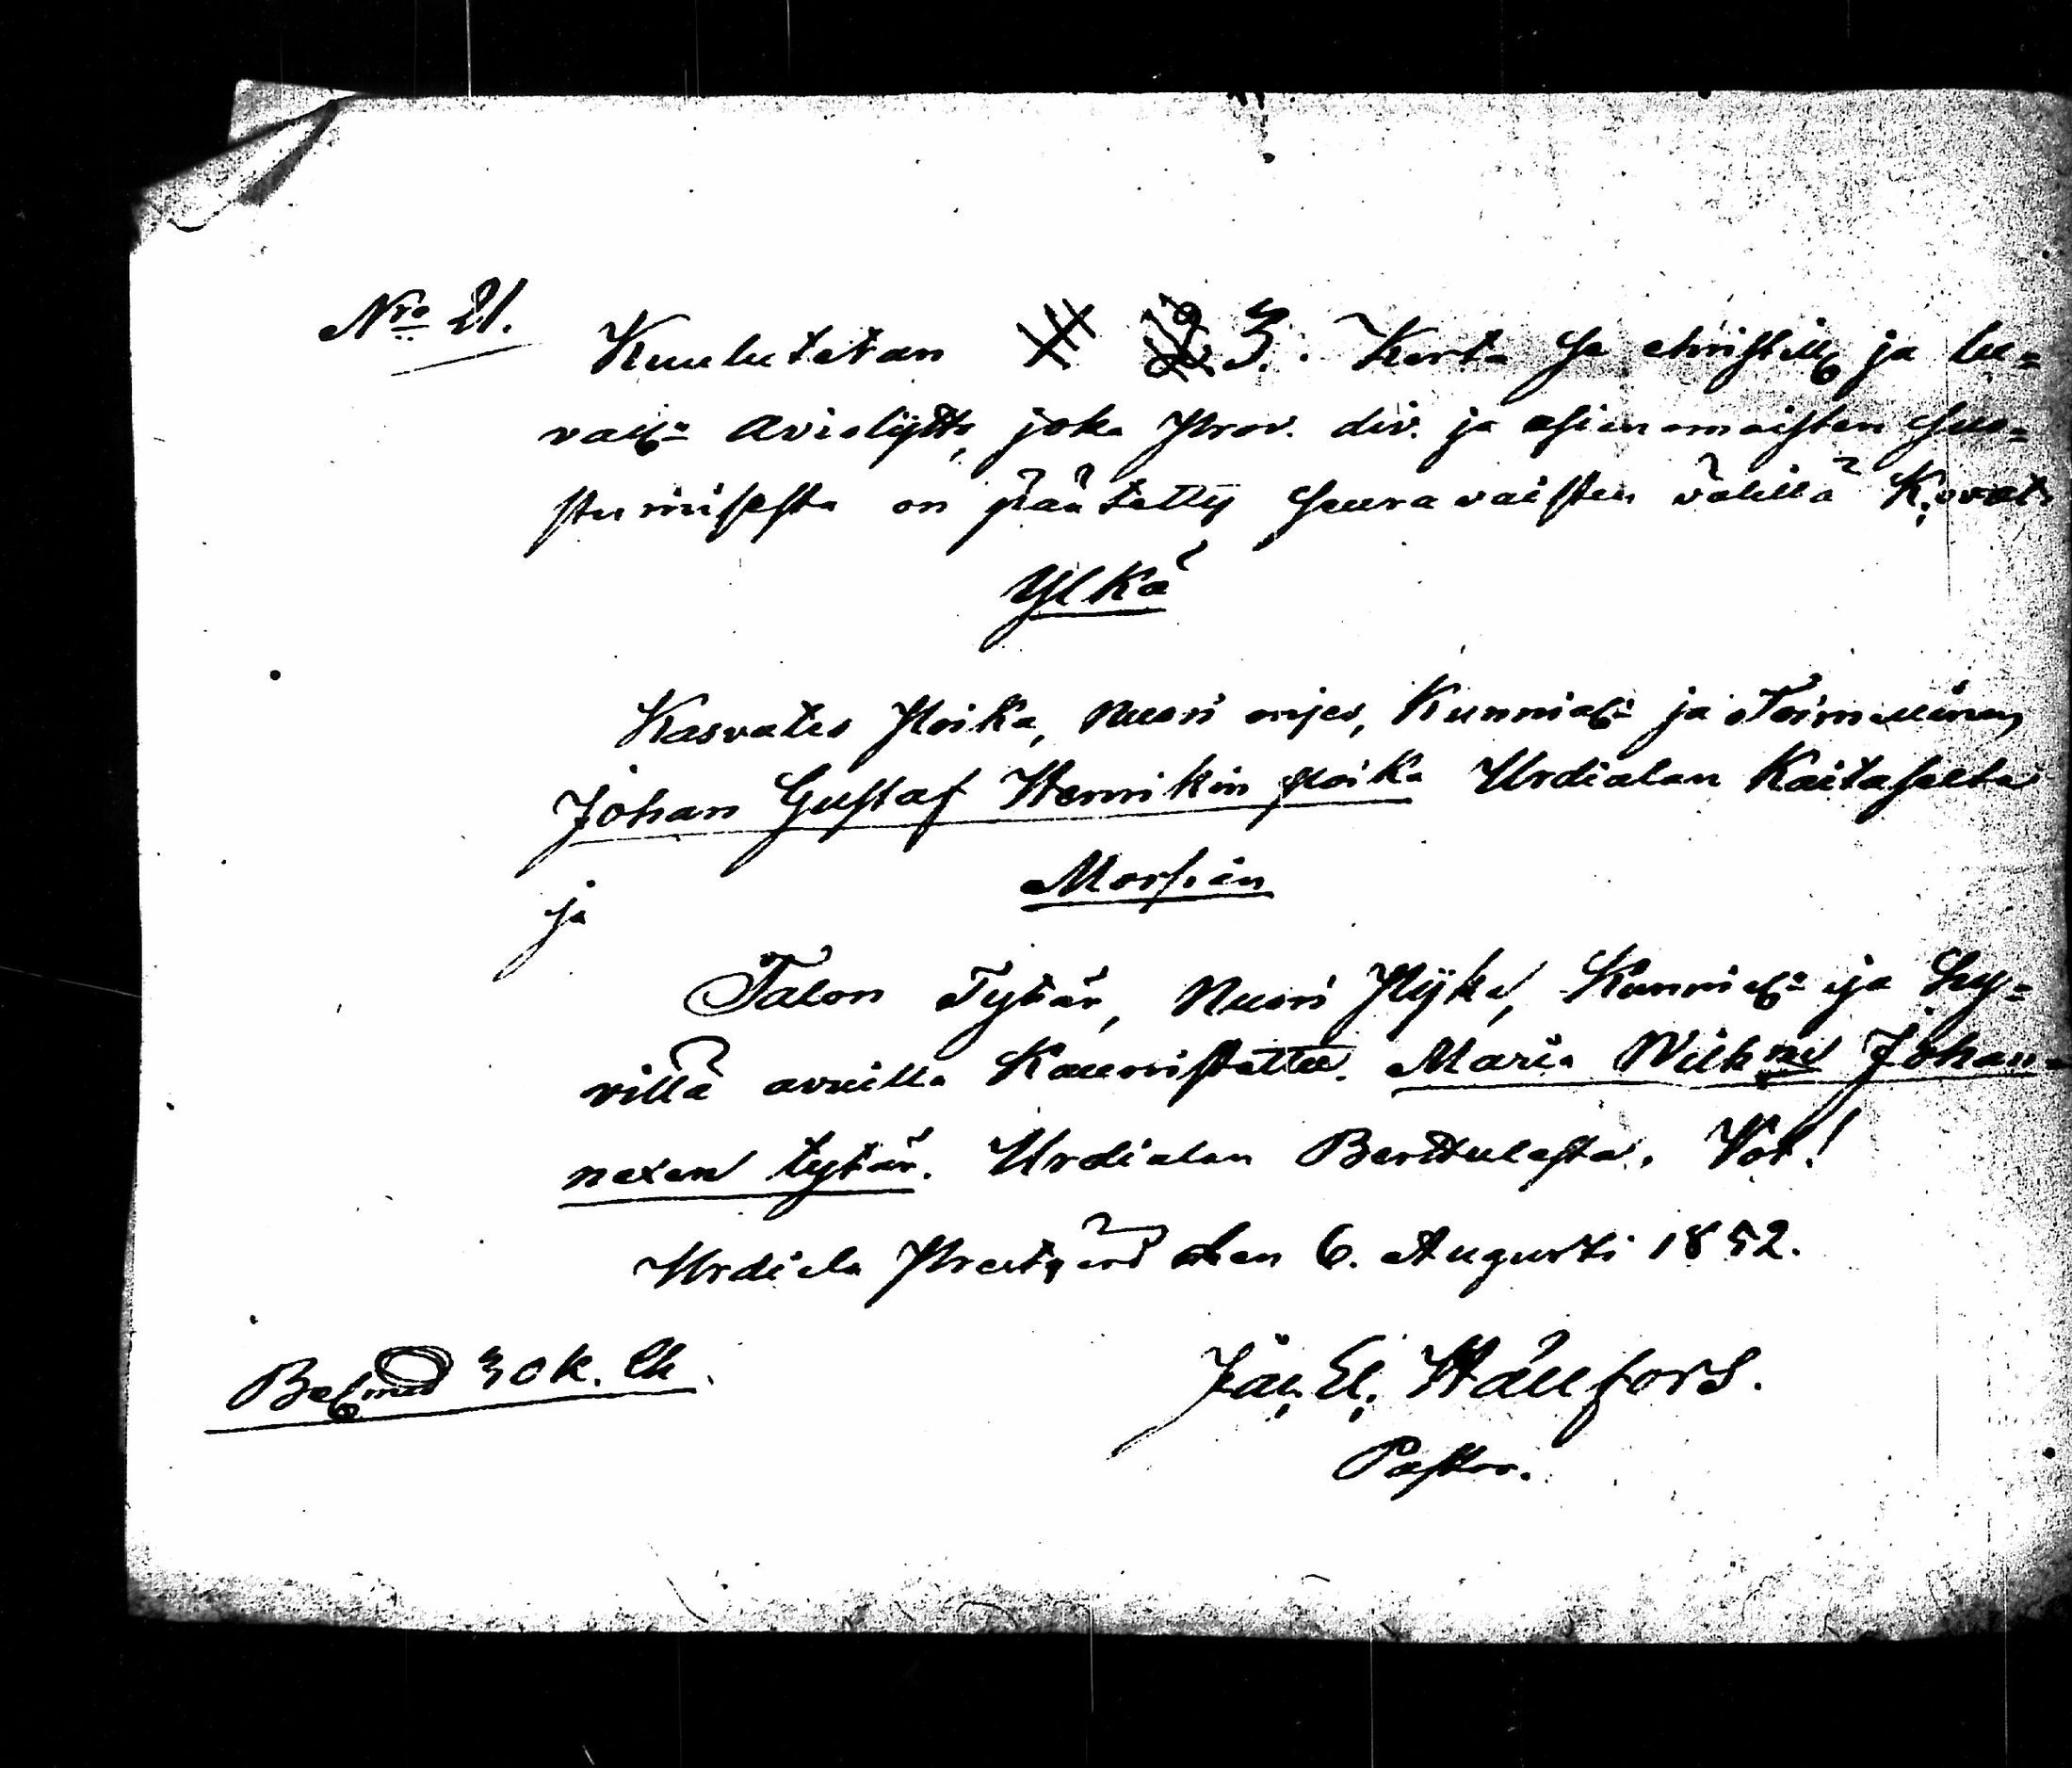 Nro 21.
Kuulutetan 3. Kerta Se christill ja lu=
vall: Aviolijtto, joka Prov. div. ja asianomaisten Suo=
stumisesta on päätetty Seuravaisten välillä K. ovat.
Ylkä
Kasvatus Poika, Nuori mjes, Kunniall: ja Toimellinen
Johan Gustaf Henrikin poika Urdialan Kaitaselta
ja Morsian
Talon Tytär, Nuori Pijka, Kunniall: ja Hy=
villä avuilla Kaunistettu. Maria Wilhna Johan=
nexen tytär. Urdialan Berttulasta.
Urdiala Prestgård den 6. Augusti 1852.
30 k.
Hällfors.
Pastor.